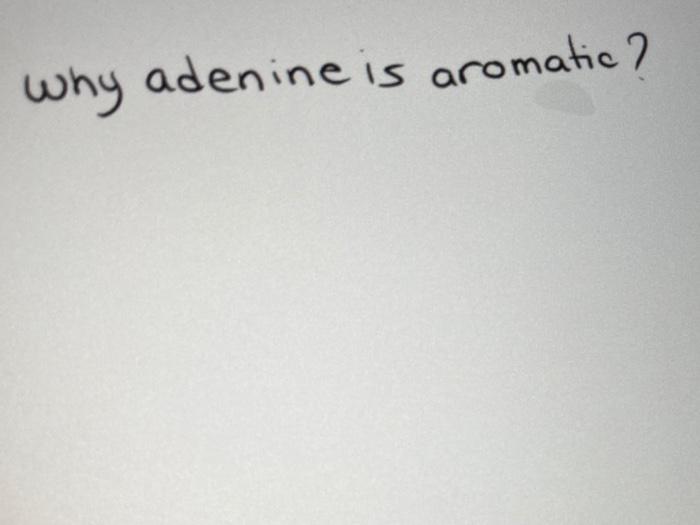 why adenine is aromatic?